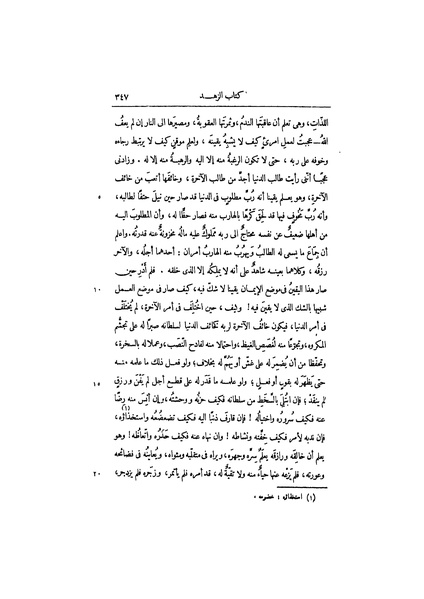 كتاب الزهد ٣٤٧
اللذات، وهى تعلم أن عاقبتها الندم، وثمرتها العقوبة، ومصيرها الى النار إن لم يعف
الله — عجبت لعمل امرئ كيف لا يشبه يقينه، ولعلم موقن كيف لا يرتبط رجاءه
وخوفه على ربه، حتى لا تكون الرغبة منه إلا اليه والرهبة منه إلا له. وزادنى
عجبا أننى رأيت طالب الدنيا أجد من طالب الآخرة، وخائفها أتعب من خائف
الآخرة، وهو يعلم يقينا أنه رب مطلوب فى الدنيا قد صار حين نيل حتفا لطالبه، ٥
وأنه رب مخوف فيها قد لحق كرها بالهارب منه فصار حظا له، وأن المطلوب اليه
من أهلها ضعيف عن نفسه محتاج الى ربه مملوك عليه ماله مخزونة عنه قدرته. واعلم
أن جماع ما يسعى له الطالب ويهرب منه الهارب أمران: أحدهما أجله، والآخر
رزقه، وكلاهما بعينه شاهد على أنه لا يملكه إلا الذى خلقه. فلم أدر حين
صار هذا اليقين فى موضع الإيمان يقينا لا شك فيه، كيف صار فى موضع العمل ١٠
شبيها بالشك الذى لا يقين فيه! وكيف، حين اختلف فى أمر الآخرة، لم يختلف
فى أمر الدنيا، فيكون خائف الآخرة لربه كخائف الدنيا لسلطانه صبرا له على تجشم
المكروه، وتجرعا منه لغصص الغيظ، واحتمالا منه لفادح النصب، وعملا له بالسخرة،
وتحفظا من أن يضمر له على غش أو يهم له بخلاف؛ ولو فعل ذلك ما علمه منه
حتى يظهر له بقول أو فعل؛ ولو علمه ما قدر له على قطع أجل لم يفن ورزق ١٥
لم ينفد؛ فإن ابتلى بالسخط من سلطانه فكيف حزنه ووحشته، وإن أنس منه رضا
عنه فكيف سروره واختياله! فإن قارف ذنبا اليه فكيف تضعضعه واستخذاؤه(١)،
فإن ندبه لأمر فكيف خفته ونشاطه! وإن نهاه عنه فكيف حذره واتعاظه! وهو
يعلم أن خالقه ورازقه يعلم سره وجهره، ويراه فى متقلبه ومثواه، ويعاينه فى فضائحه
وعورته، فلم يزعه عنها حياء منه ولا تقية له، قد أمره فلم يأتمر، وزجره فلم يزدجر، ٢٠
(١) استخذاؤه: خضوعه.